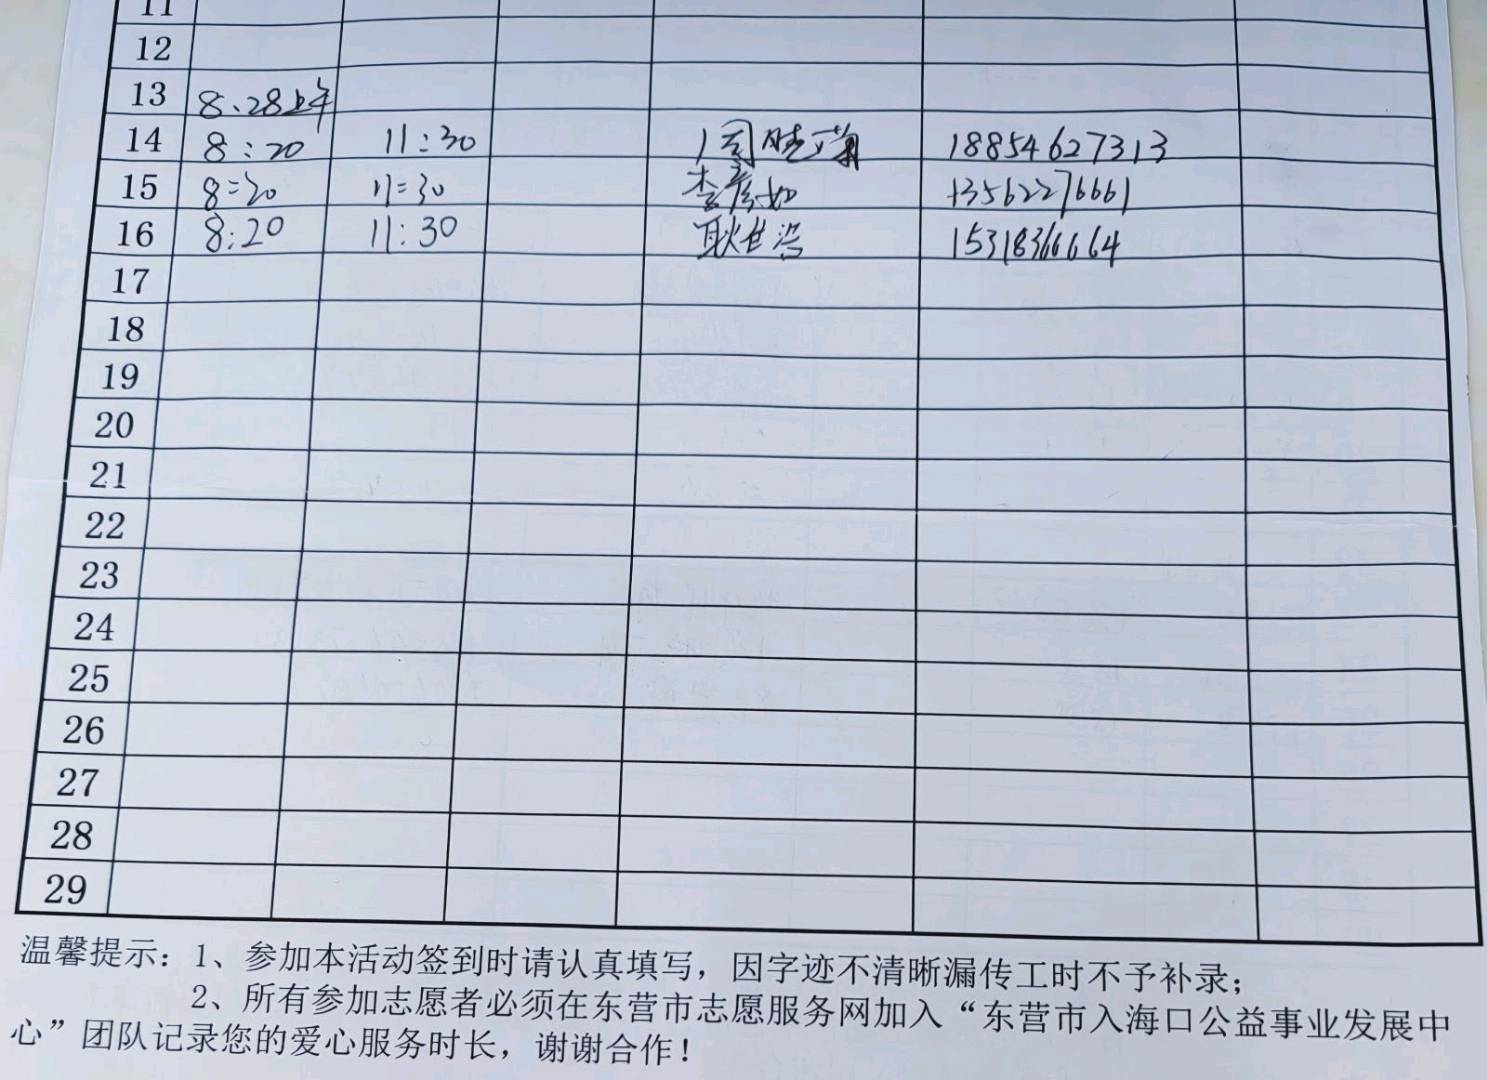 11
12
13 8.28上午
14 8:20 11:30 周晓菊 18854627313
15 8:20 11:30 李彦如 13562276661
16 8:20 11:30 耿世 15318366664
17
18
19
20
21
22
23
24
25
26
27
28
29
温馨提示：1、参加本活动签到时请认真填写，因字迹不清晰漏传工时不予补录；
2、所有参加志愿者必须在东营市志愿服务网加入“东营市入海口公益事业发展中
心”团队记录您的爱心服务时长，谢谢合作！